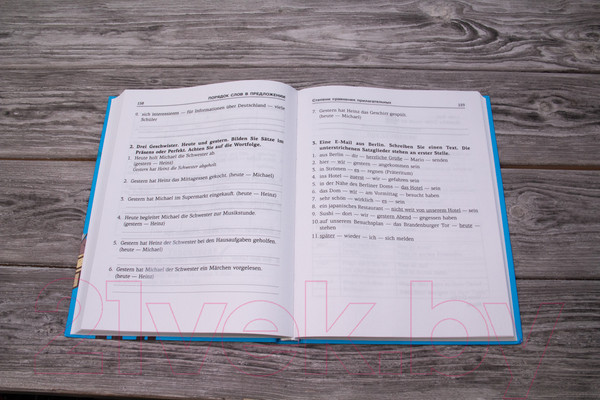 ПОРЯДОК СЛОВ В ПРЕДЛОЖЕНИИ
9. sich interessieren — für Informationen über Deutschland — viele
Schüler
2. Drei Geschwister. Heute und gestern. Bilden Sie Sätze im
Präsens oder Perfekt. Achten Sie auf die Wortfolge.
1. Heute holt Michael die Schwester ab.
(gestern — Heinz)
Gestern hat Heinz die Schwester abgeholt.
2. Gestern hat Heinz das Mittagessen gekocht. (heute — Michael)
3. Gestern hat Michael im Supermarkt eingekauft. (heute — Heinz)
4. Heute begleitet Michael die Schwester zur Musikstunde.
(gestern — Heinz)
5. Gestern hat Heinz der Schwester bei den Hausaufgaben geholfen.
(heute — Michael)
6. Gestern hat Michael der Schwester ein Märchen vorgelesen.
(heute — Heinz)
Степени сравнения прилагательных
7. Gestern hat Heinz das Geschirr gespült.
(heute — Michael)
3. Eine E-Mail aus Berlin. Schreiben Sie einen Text. Die
unterstrichenen Satzglieder stehen an erster Stelle.
1. aus Berlin — dir — herzliche Grüße — Mario — senden
2. hier — wir — gestern — angekommen sein
3. in Strömen — es — regnen (Präteritum)
4. ins Hotel — zuerst — wir — gefahren sein
5. in der Nähe des Berliner Doms — das Hotel — sein
6. das Dom — wir — am Vormittag — besucht haben
7. sehr schön — wirklich — es — sein
8. ein japanisches Restaurant — nicht weit von unserem Hotel — sein
9. Sushi — dort — wir — gestern Abend — gegessen haben
10. auf unserem Besuchsplan — das Brandenburger Tor — heute —
stehen
11. später — wieder — ich — sich melden
21vek.by